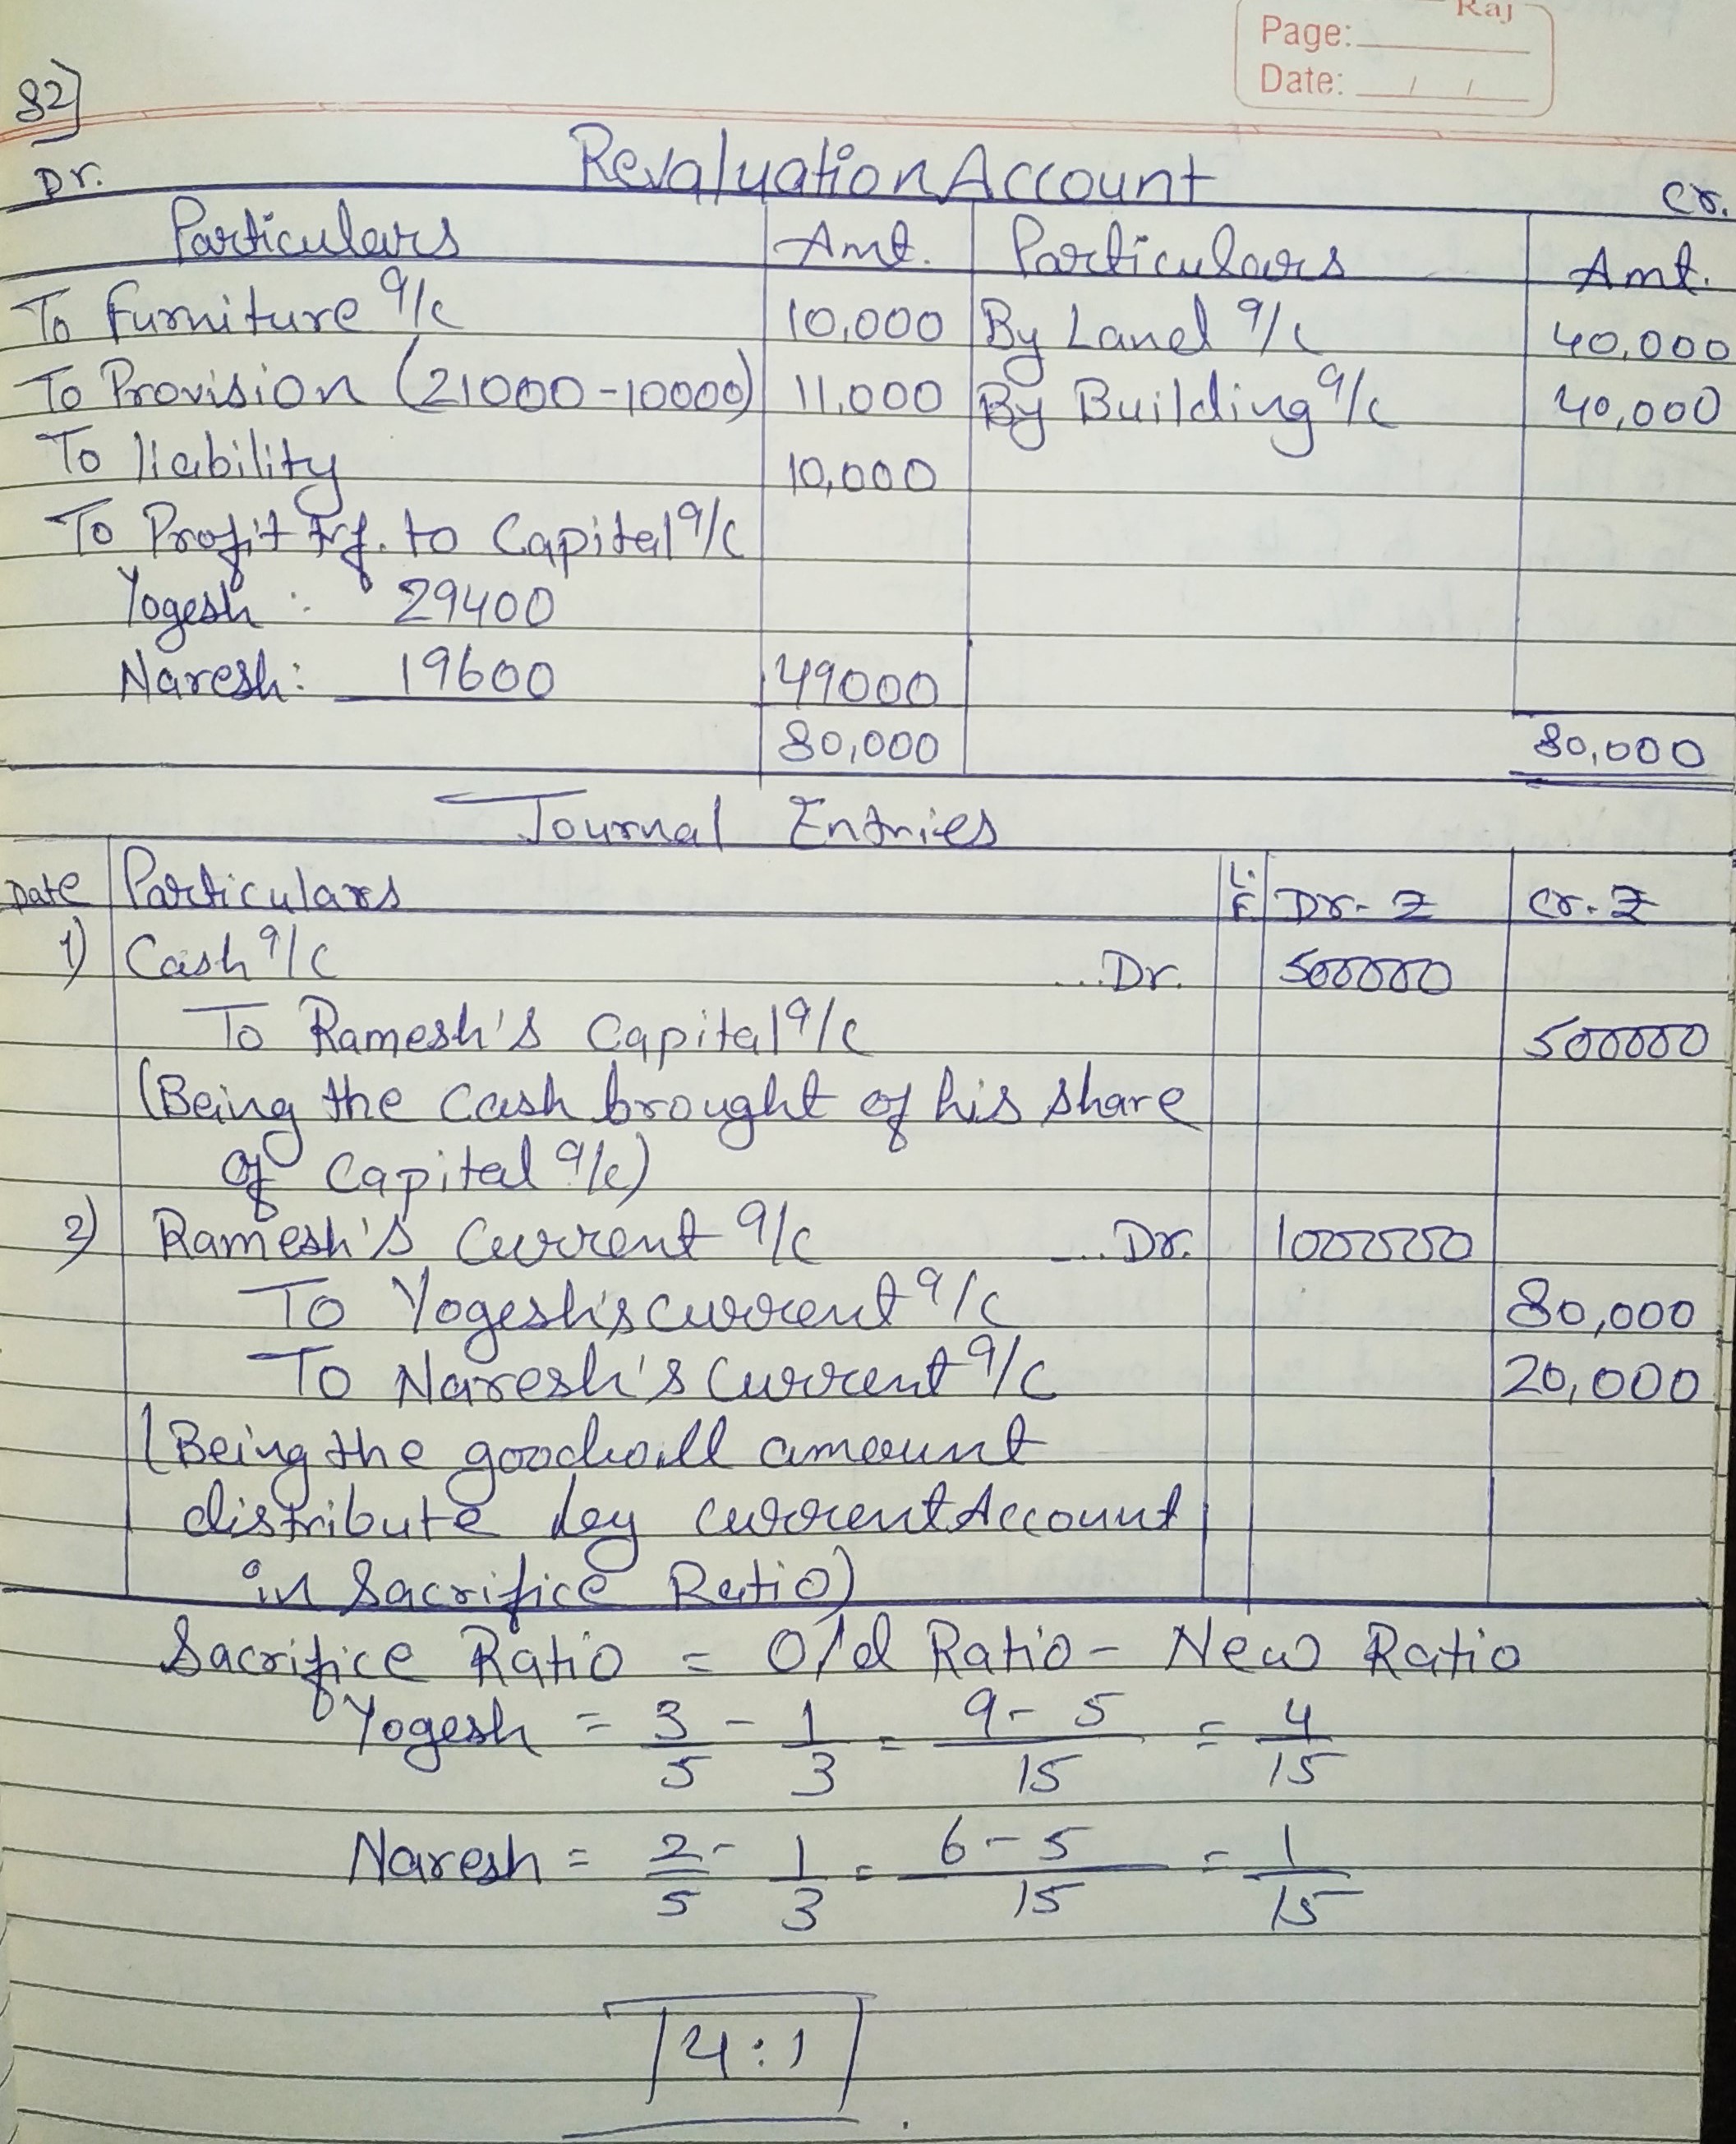 Raj
Page:
Date: / /
82]
Revaluation Account
Dr. Cr.
Particulars Amt. Particulars Amt.
To Furniture a/c 10,000 By Land a/c 40,000
To Provision (21000-10000) 11,000 By Building a/c 40,000
To liability 10,000
To Profit trf. to Capital a/c
Yogesh: 29400
Naresh: 19600 49000
80,000 80,000
Journal Entries
Date Particulars L.F. Dr. ₹ Cr. ₹
1) Cash a/c ...Dr. 500000
To Ramesh's Capital a/c 500000
(Being the cash brought of his share
of Capital a/c)
2) Ramesh's Current a/c ...Dr. 100000
To Yogesh's current a/c 80,000
To Naresh's current a/c 20,000
(Being the goodwill amount
distribute by current Account
in Sacrifice Ratio)
Sacrifice Ratio = Old Ratio - New Ratio
Yogesh = 3/5 - 1/3 = 9-5/15 = 4/15
Naresh = 2/5 - 1/3 = 6-5/15 = 1/15
4:1